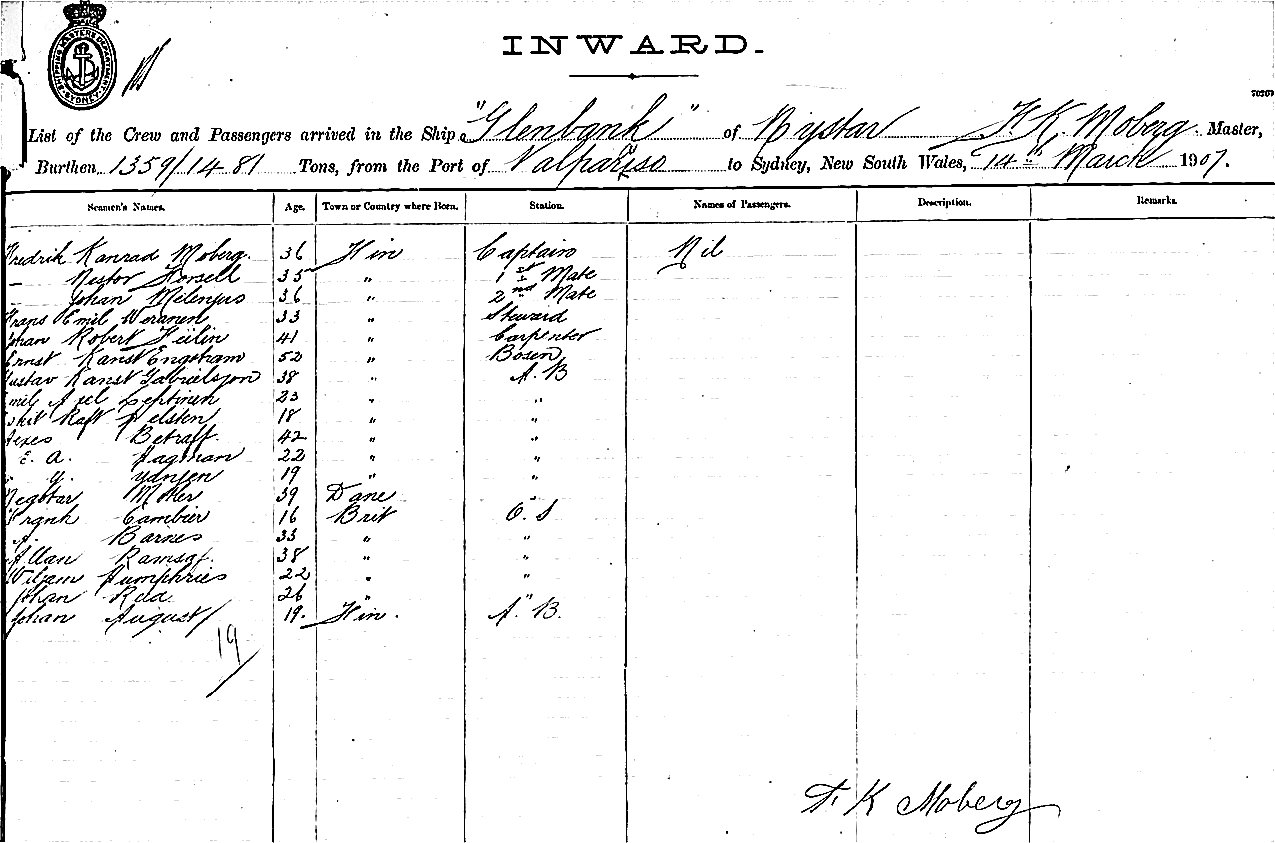 SHIPPING MASTERS DEPARTMENT SYDNEY
INWARD.
List of the Crew and Passengers arrived in the Ship "Glenbank" of Nystar F. K. Moberg Master,
Burthen 1359/1481 Tons, from the Port of Valparaiso to Sydney, New South Wales, 14th March 1907.
Seamen's Names. Age. Town or Country where Born. Station. Names of Passengers. Description. Remarks.
Fredrik Konrad Moberg. 36 Fin Captain Nil
— Nestor Forsell 35 " 1st Mate
— Johan Milenius 36 " 2nd Mate
Frans Emil Woranen 33 " Steward
Johan Robert 41 " Carpenter
Ernst 52 " Bosen
Gustav Gabrielsson 38 " A. B
Emil Axel 23 " "
18 " "
42 " "
E. A. 22 " "
19 " "
39 Dane "
Frank Cambier 16 Brit O. S
A. Barnes 33 " "
Allan Ramsay. 38 " "
Wiliam Humphries 22 " "
Johan Reid. 26 " "
Johan August 19. Fin. A. B.
19
F. K Moberg